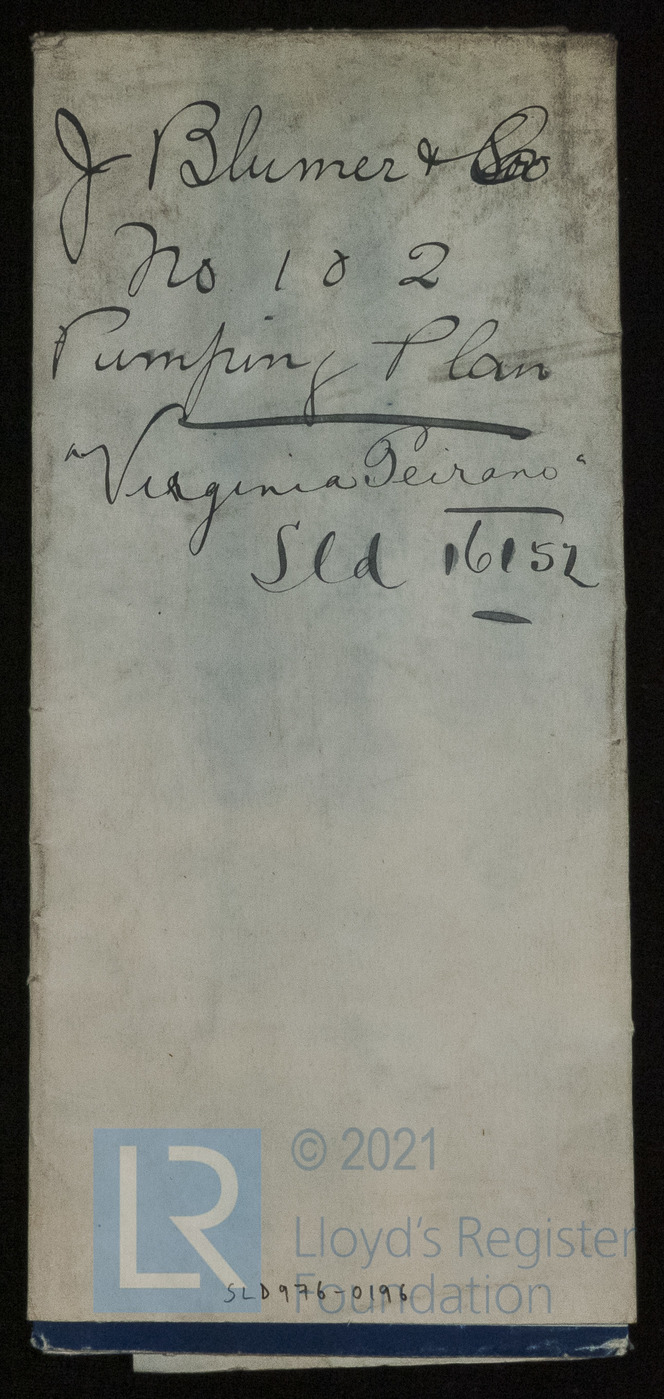 J Blumer & Co
No 1 8 2
Pumping Plan
"Virginia Peirano"
Sld 16152
LR
© 2021
Lloyd's Register
Foundation
SLD976-0196